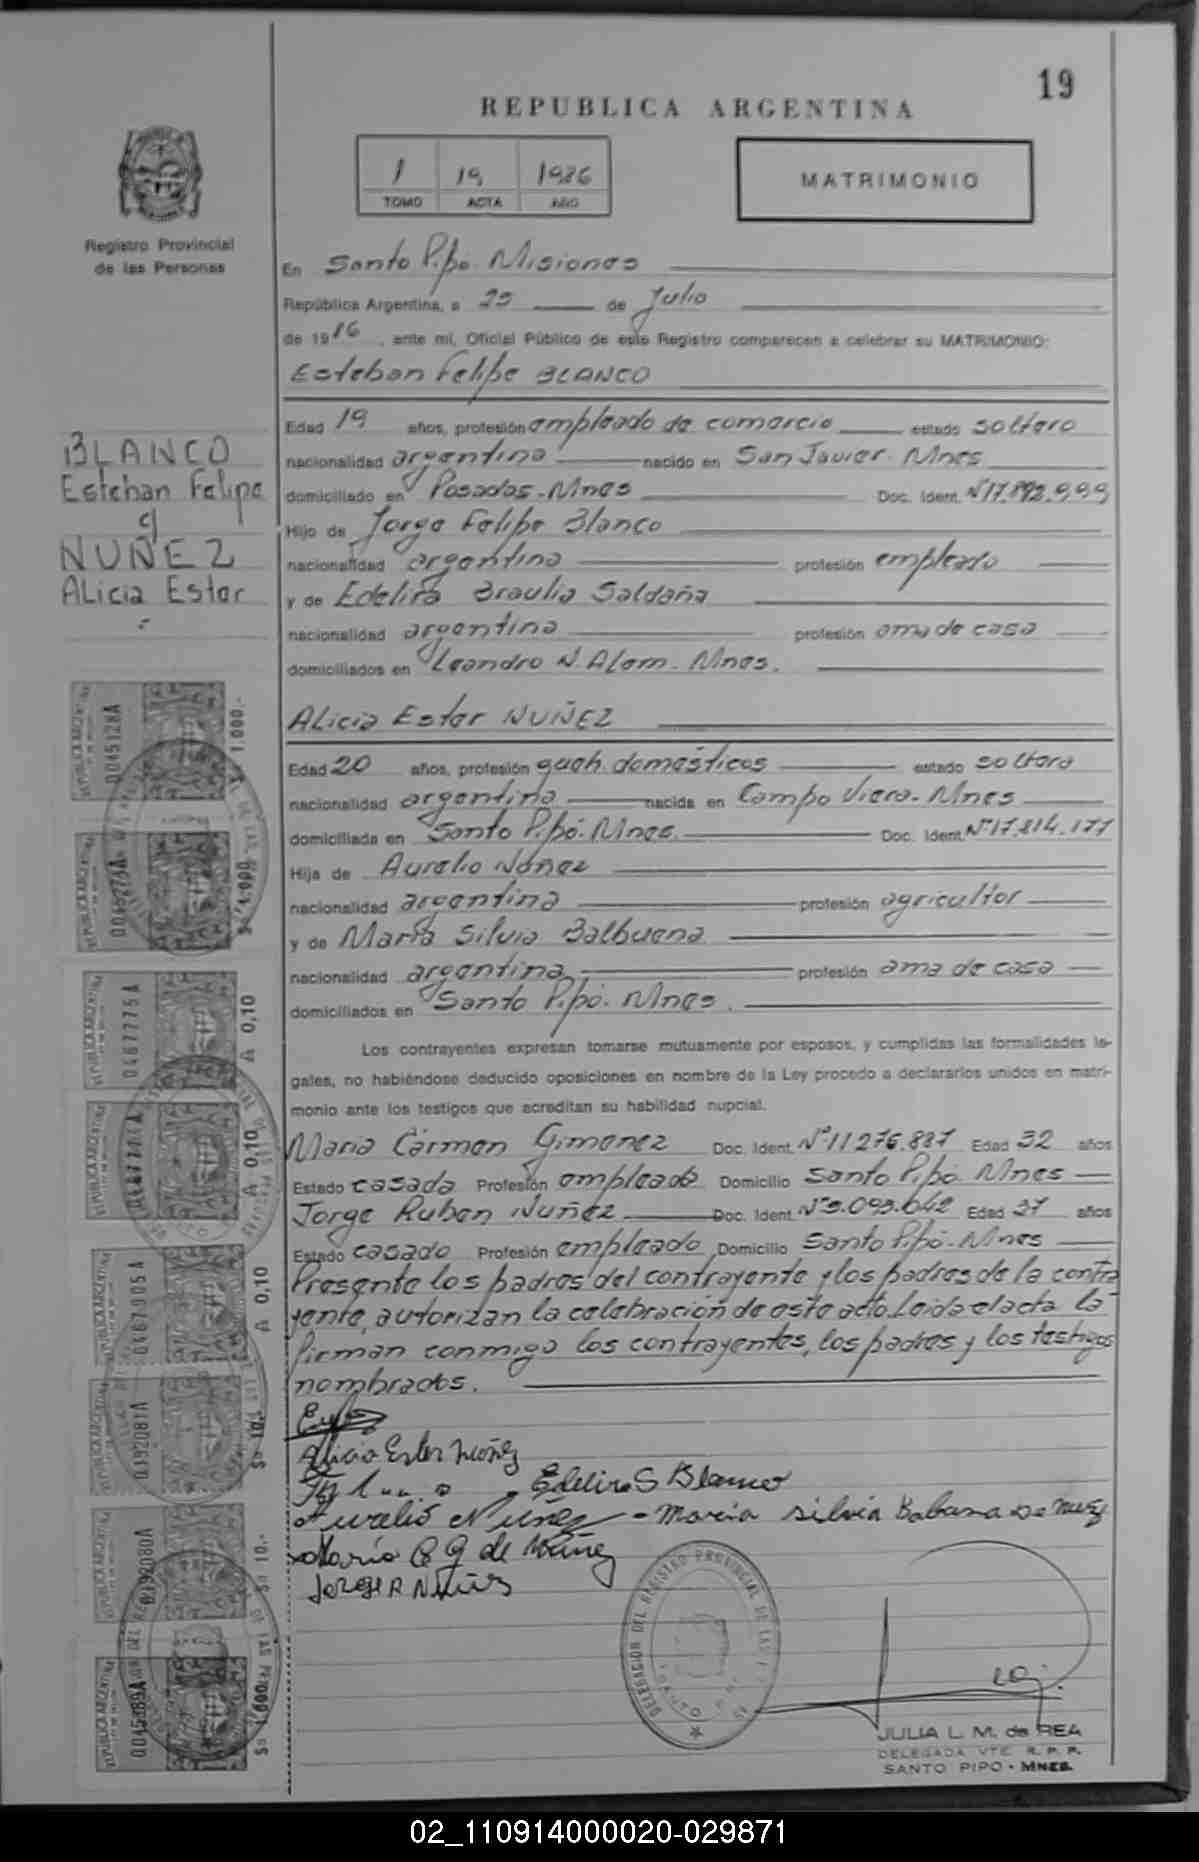 19
REPUBLICA ARGENTINA
1 19 1986
TOMO ACTA AÑO
MATRIMONIO
Registro Provincial
de las Personas
En Santo Pipó. Misiones
República Argentina, a 25 de Julio
de 1986, ante mi, Oficial Público de este Registro comparecen a celebrar su MATRIMONIO:
Esteban Felipe BLANCO
Edad 19 años, profesión empleado de comercio estado soltero
nacionalidad argentina nacido en San Javier. Mnes
domiciliado en Posadas-Mnes Doc. Ident. Nº17.892.999
Hijo de Jorge Felipe Blanco
nacionalidad argentina profesión empleado
y de Edelira Braulia Saldaña
nacionalidad argentina profesión ama de casa
domiciliados en Leandro N. Alem. Mnes.
BLANCO
Esteban Felipe
y
NUÑEZ
Alicia Ester
Alicia Ester NUÑEZ
Edad 20 años, profesión queh. domésticos estado soltera
nacionalidad argentina nacida en Campo Viera. Mnes
domiciliada en Santo Pipó. Mnes. Doc. Ident. Nº17.814.177
Hija de Aurelio Núñez
nacionalidad argentina profesión agricultor
y de María Silvia Balbuena
nacionalidad argentina, profesión ama de casa
domiciliados en Santo Pipó. Mnes.
Los contrayentes expresan tomarse mutuamente por esposos, y cumplidas las formalidades le-
gales, no habiéndose deducido oposiciones en nombre de la Ley procedo a declararlos unidos en matri-
monio ante los testigos que acreditan su habilidad nupcial.
Maria Cármen Gimenez Doc. Ident. Nº11276.887 Edad 32 años
Estado casada Profesión empleada Domicilio Santo Pipó Mnes
Jorge Ruben Nuñez Doc. Ident. Edad 37 años
Estado casado Profesión empleado Domicilio Santo Pipó-Mnes
Presente los padres del contrayente y los padres de la contra
yente, autorizan la celebración de este acto. Leida el acta la
firman conmigo los contrayentes, los padres y los testigos
nombrados.
Alicia Ester Nuñez
Edelira S Blanco
Aurelio Nuñez - Maria Silvia Babuena De Nuñez
Maria C G de Núñez
Jorge R Nuñes
REPUBLICA ARGENTINA 0045128A $ 1.000.-
REPUBLICA ARGENTINA 0045275A $ 1.000
REPUBLICA ARGENTINA 0467775A A 0,10
REPUBLICA ARGENTINA A 0,10
REPUBLICA ARGENTINA 0467905A A 0,10
REPUBLICA ARGENTINA 0192081A $a 10.-
REPUBLICA ARGENTINA 0192080A $a 10.-
REPUBLICA ARGENTINA 0045089A $a 1.000
DELEGACION DEL REGISTRO PROVINCIAL DE LAS
SANTO
JULIA L. M. de REA
DELEGADA VTE R. P. P.
SANTO PIPO - MNES.
02_110914000020-029871